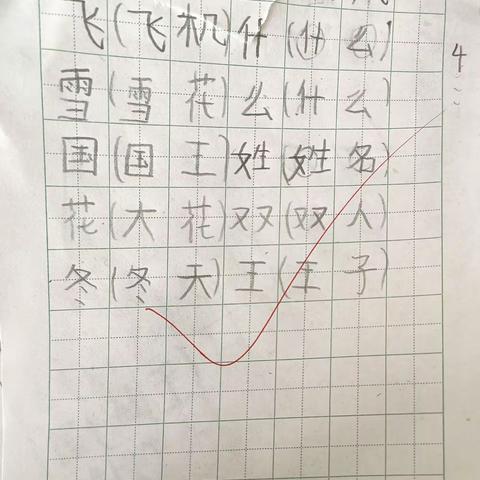 飞(飞机)什(什么)
雪(雪花)么(什么)
国(国王)姓(姓名)
花(大花)双(双人)
冬(冬天)王(王子)
4